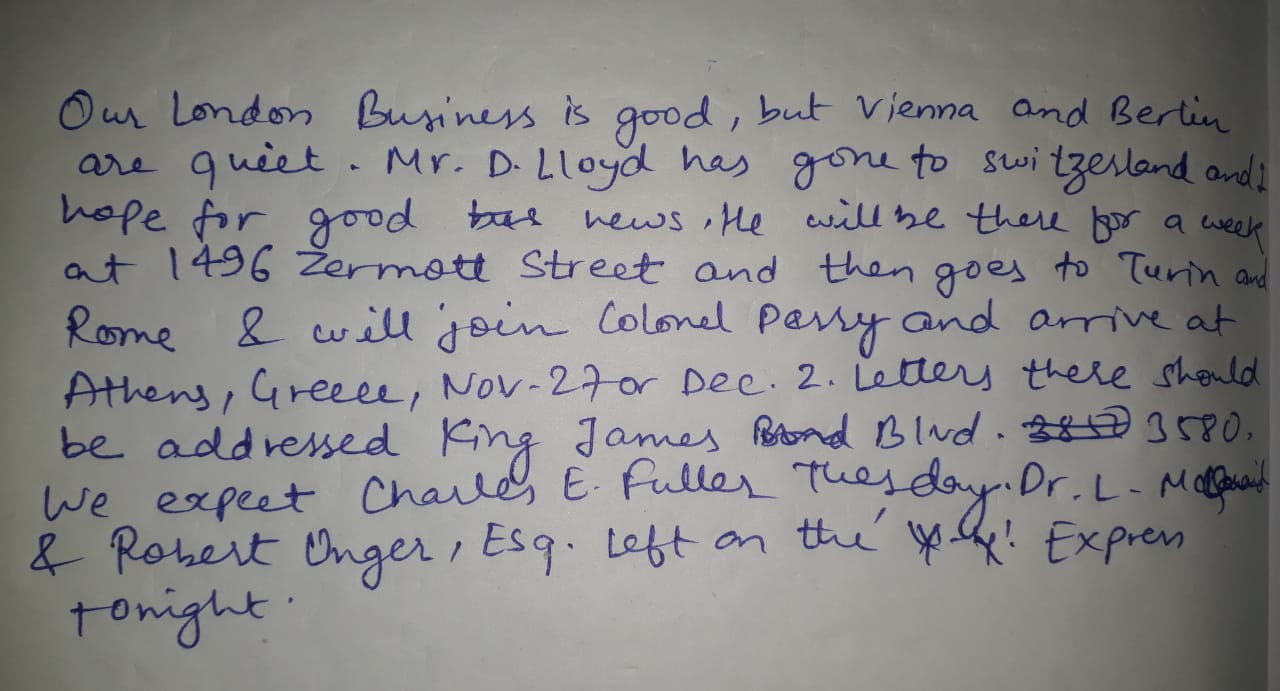 Our London Business is good, but Vienna and Berlin
are quiet. Mr. D. Lloyd has gone to switzerland and I
hope for good news. He will be there for a week
at 1496 Zermott Street and then goes to Turin and
Rome & will join Colonel Parry and arrive at
Athens, Greece, Nov-27 or Dec. 2. Letters there should
be addressed King James Blvd. 3580.
We expect Charles E. Fuller Tuesday. Dr. L-
& Robert Unger, Esq. Left on the Express
tonight.